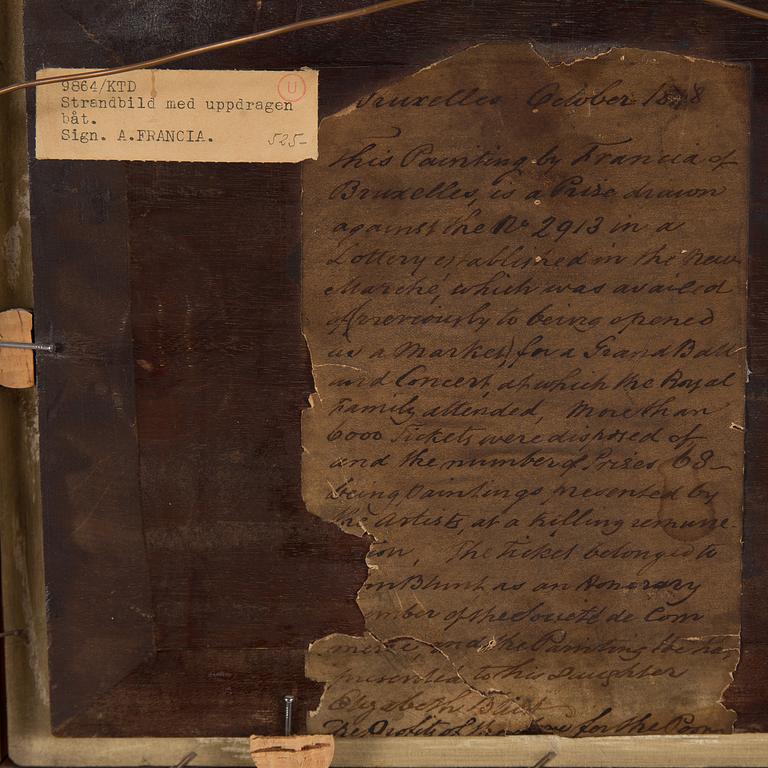 9864/KTD
U
Strandbild med uppdragen
båt.
Sign. A.FRANCIA.
525-
Bruxelles October 18 8
This Painting by Francia of
Bruxelles, is a Prize drawn
against the No 2913 in a
Lottery established in the New
Marché, which was availed
of (previously to being opened
as a Market) for a Grand Ball
and Concert, at which the Royal
Family attended, More than
6000 Tickets were disposed of
and the number of Prizes 68-
being Paintings presented by
the Artists, at a killing remune-
ion, The Ticket belonged to
m Blunt as an Honorary
mber of the Société de Com
merce, and the Painting he has
presented to his daughter
Elizabeth Blunt
The Profits of the for the Poor